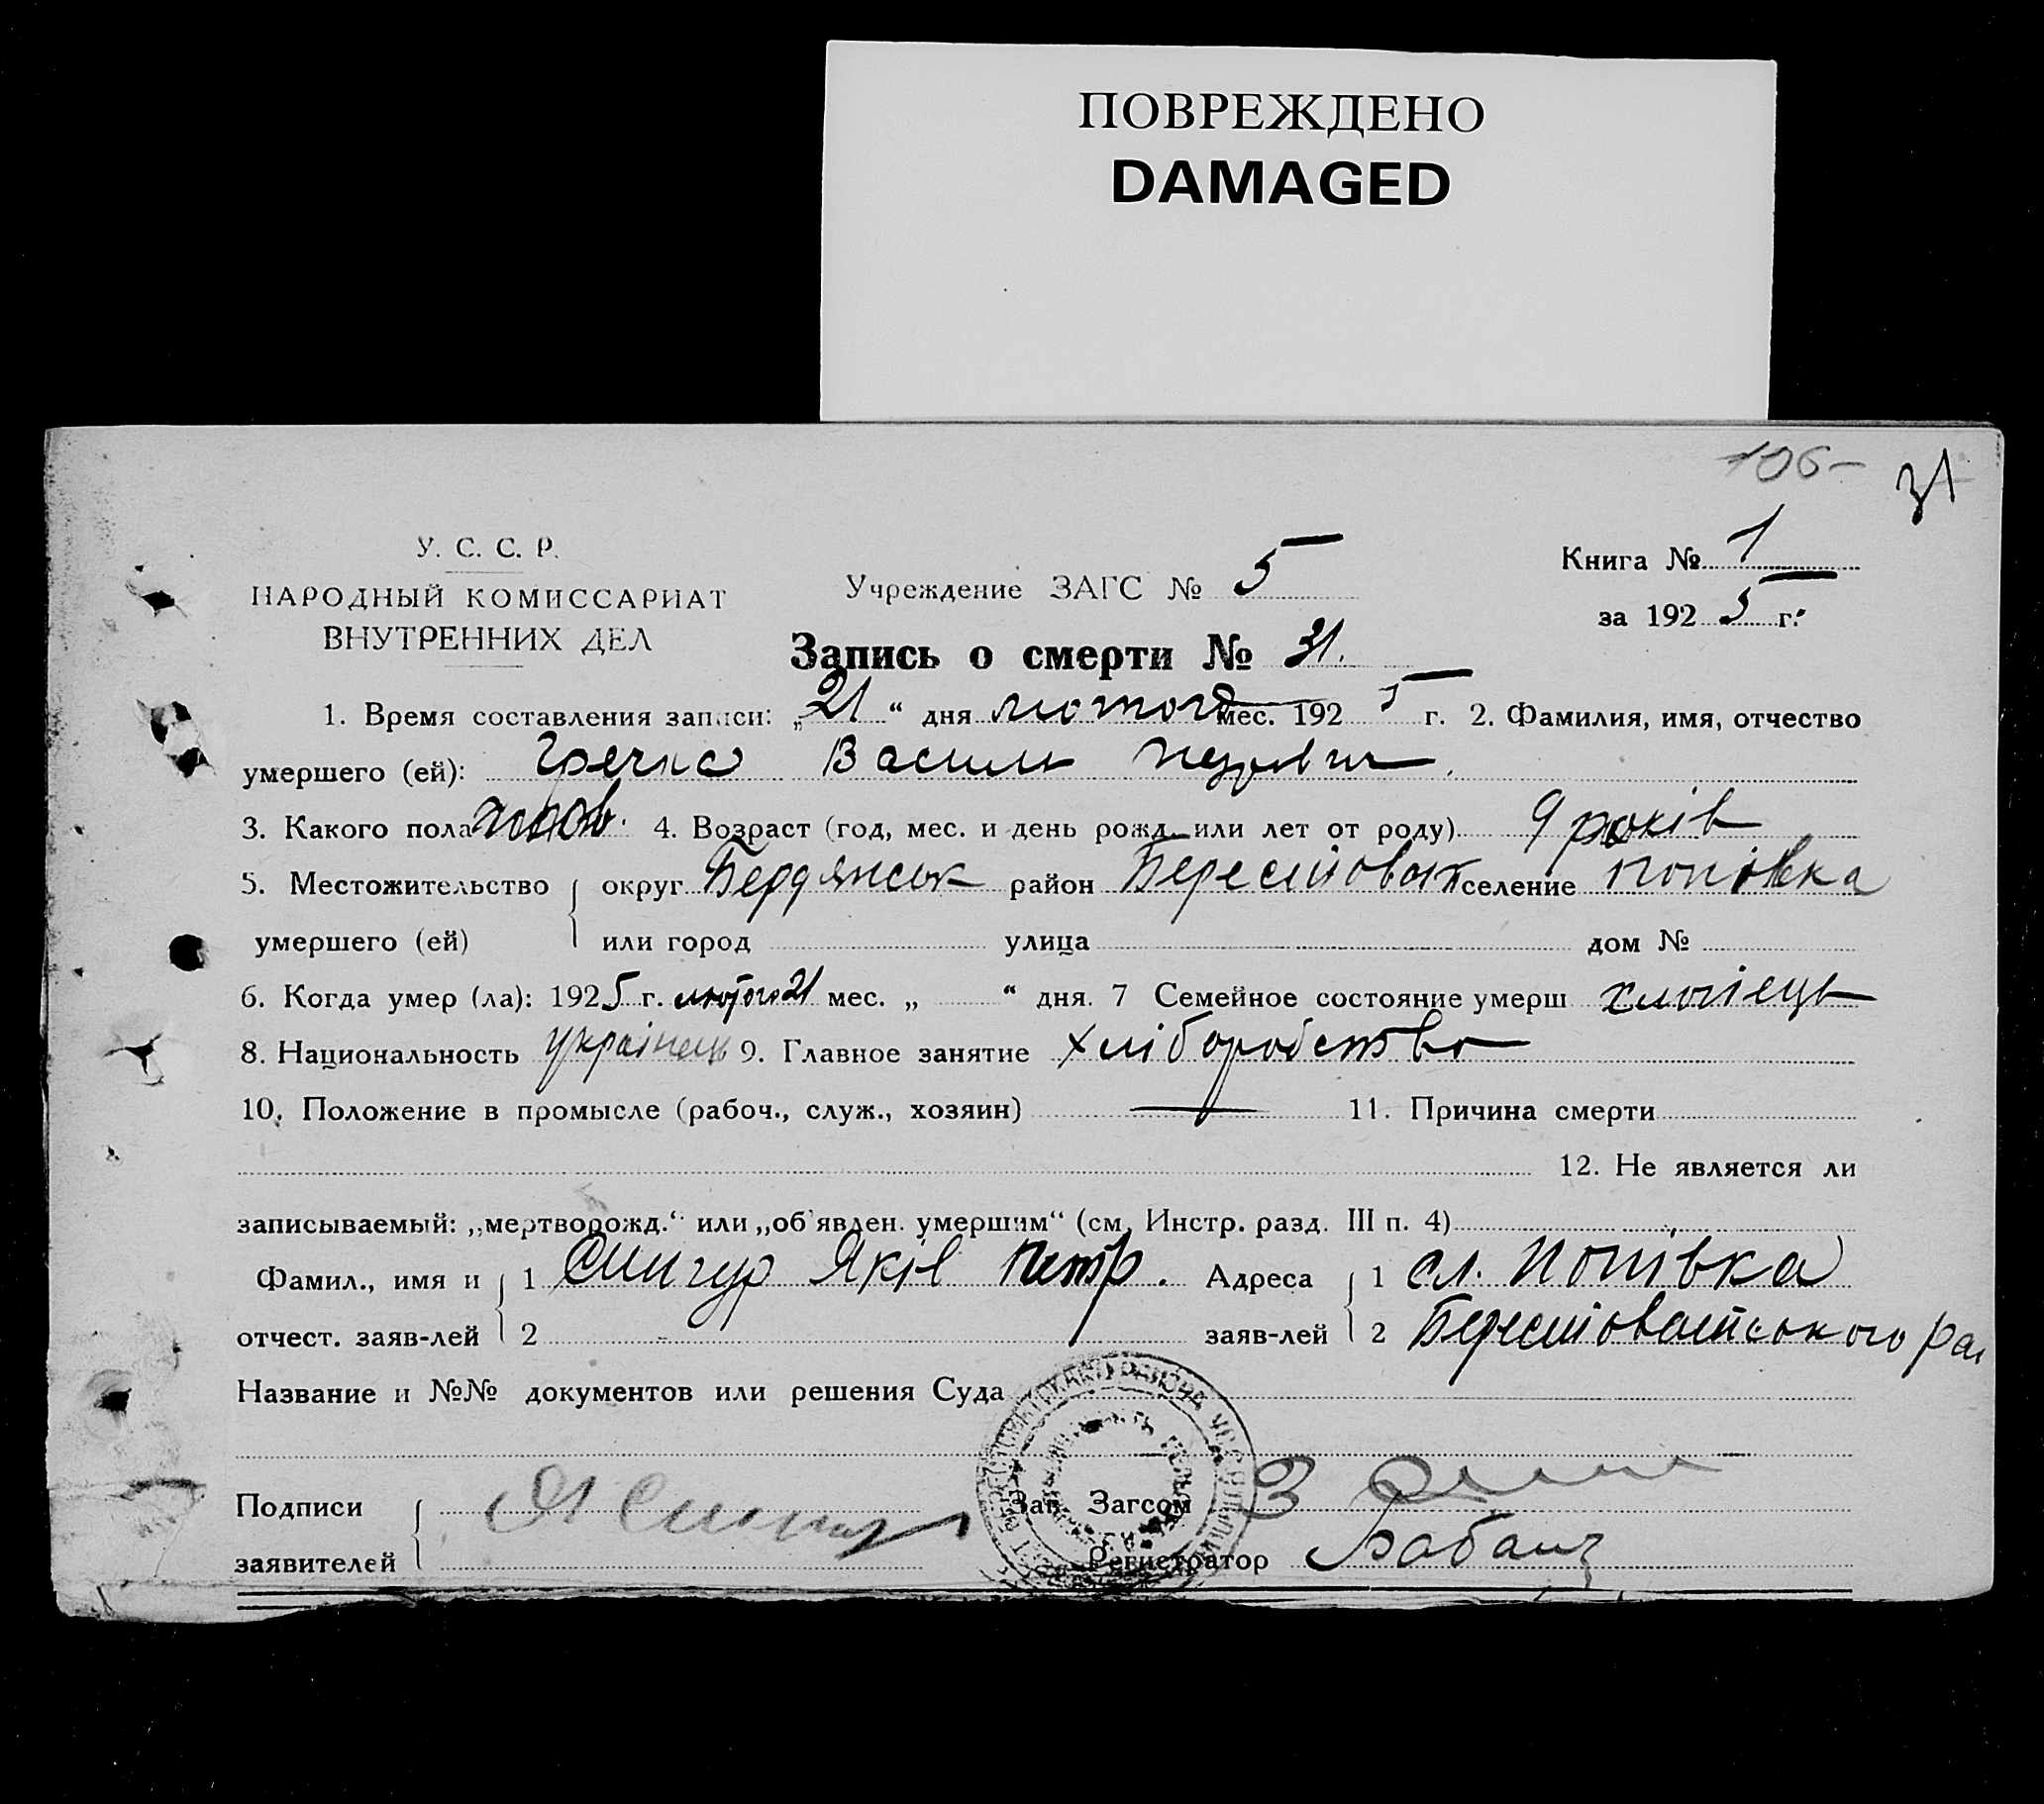 ПОВРЕЖДЕНО
DAMAGED
106
31
У. С. С. Р.
НАРОДНЫЙ КОМИССАРИАТ
ВНУТРЕННИХ ДЕЛ
Учреждение ЗАГС № 5
Книга № 1
за 192 5 г.
Запись о смерти № 31.
1. Время составления записи: „21“ дня лютого мес. 192 5 г. 2. Фамилия, имя, отчество
умершего (ей): Гречко Василь Петрович.
3. Какого пола 4. Возраст (год, мес. и день рожд. или лет от роду) 9 років
5. Местожительство округ Бердянськ район Берестоват селение Попівка
умершего (ей) или город улица дом №
6. Когда умер (ла): 1925 г. лютого 21 мес. „ “ дня. 7 Семейное состояние умерш хлопець
8. Национальность українець 9. Главное занятие хліборобство
10. Положение в промысле (рабоч., служ., хозяин) — 11. Причина смерти
12. Не является ли
записываемый: „мертворожд.“ или „об'явлен. умершим“ (см. Инстр. разд. III п. 4)
Фамил., имя и 1 Сингур Яків Петр. Адреса 1 сл. Попівка
отчест. заяв-лей 2 заяв-лей 2 Берестоватського ра
Название и №№ документов или решения Суда
Подписи Зав. Загсом
заявителей Регистратор